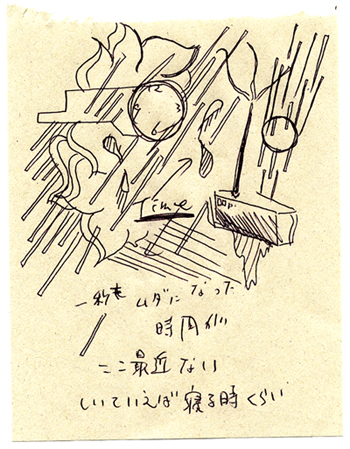 Time
一秒も ムダに なった
時間が
ここ最近 ない
しいていえば 寝る時くらい